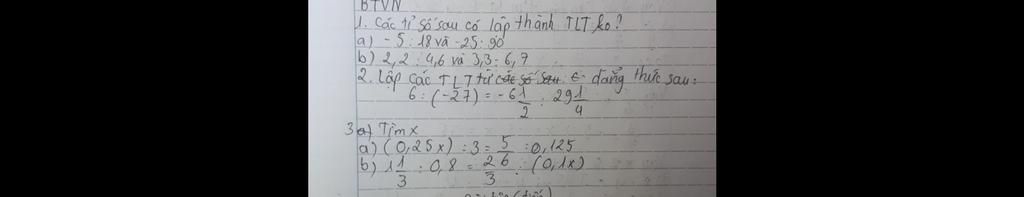 BTVN
1. Các tỉ số sau có lập thành TLT ko?
a) -5 : 18 và -25 : 90
b) 2,2 : 4,6 và 3,3 : 6,7
2. Lập các TLT từ các số sau đẳng thức sau:
6 : (-27) = -6 1/2 : 29 1/4
3 a) Tìm x
a) (0,25x) : 3 = 5/6 : 0,125
b) 1 1/3 : 0,8 = 2/3 : (0,1x)